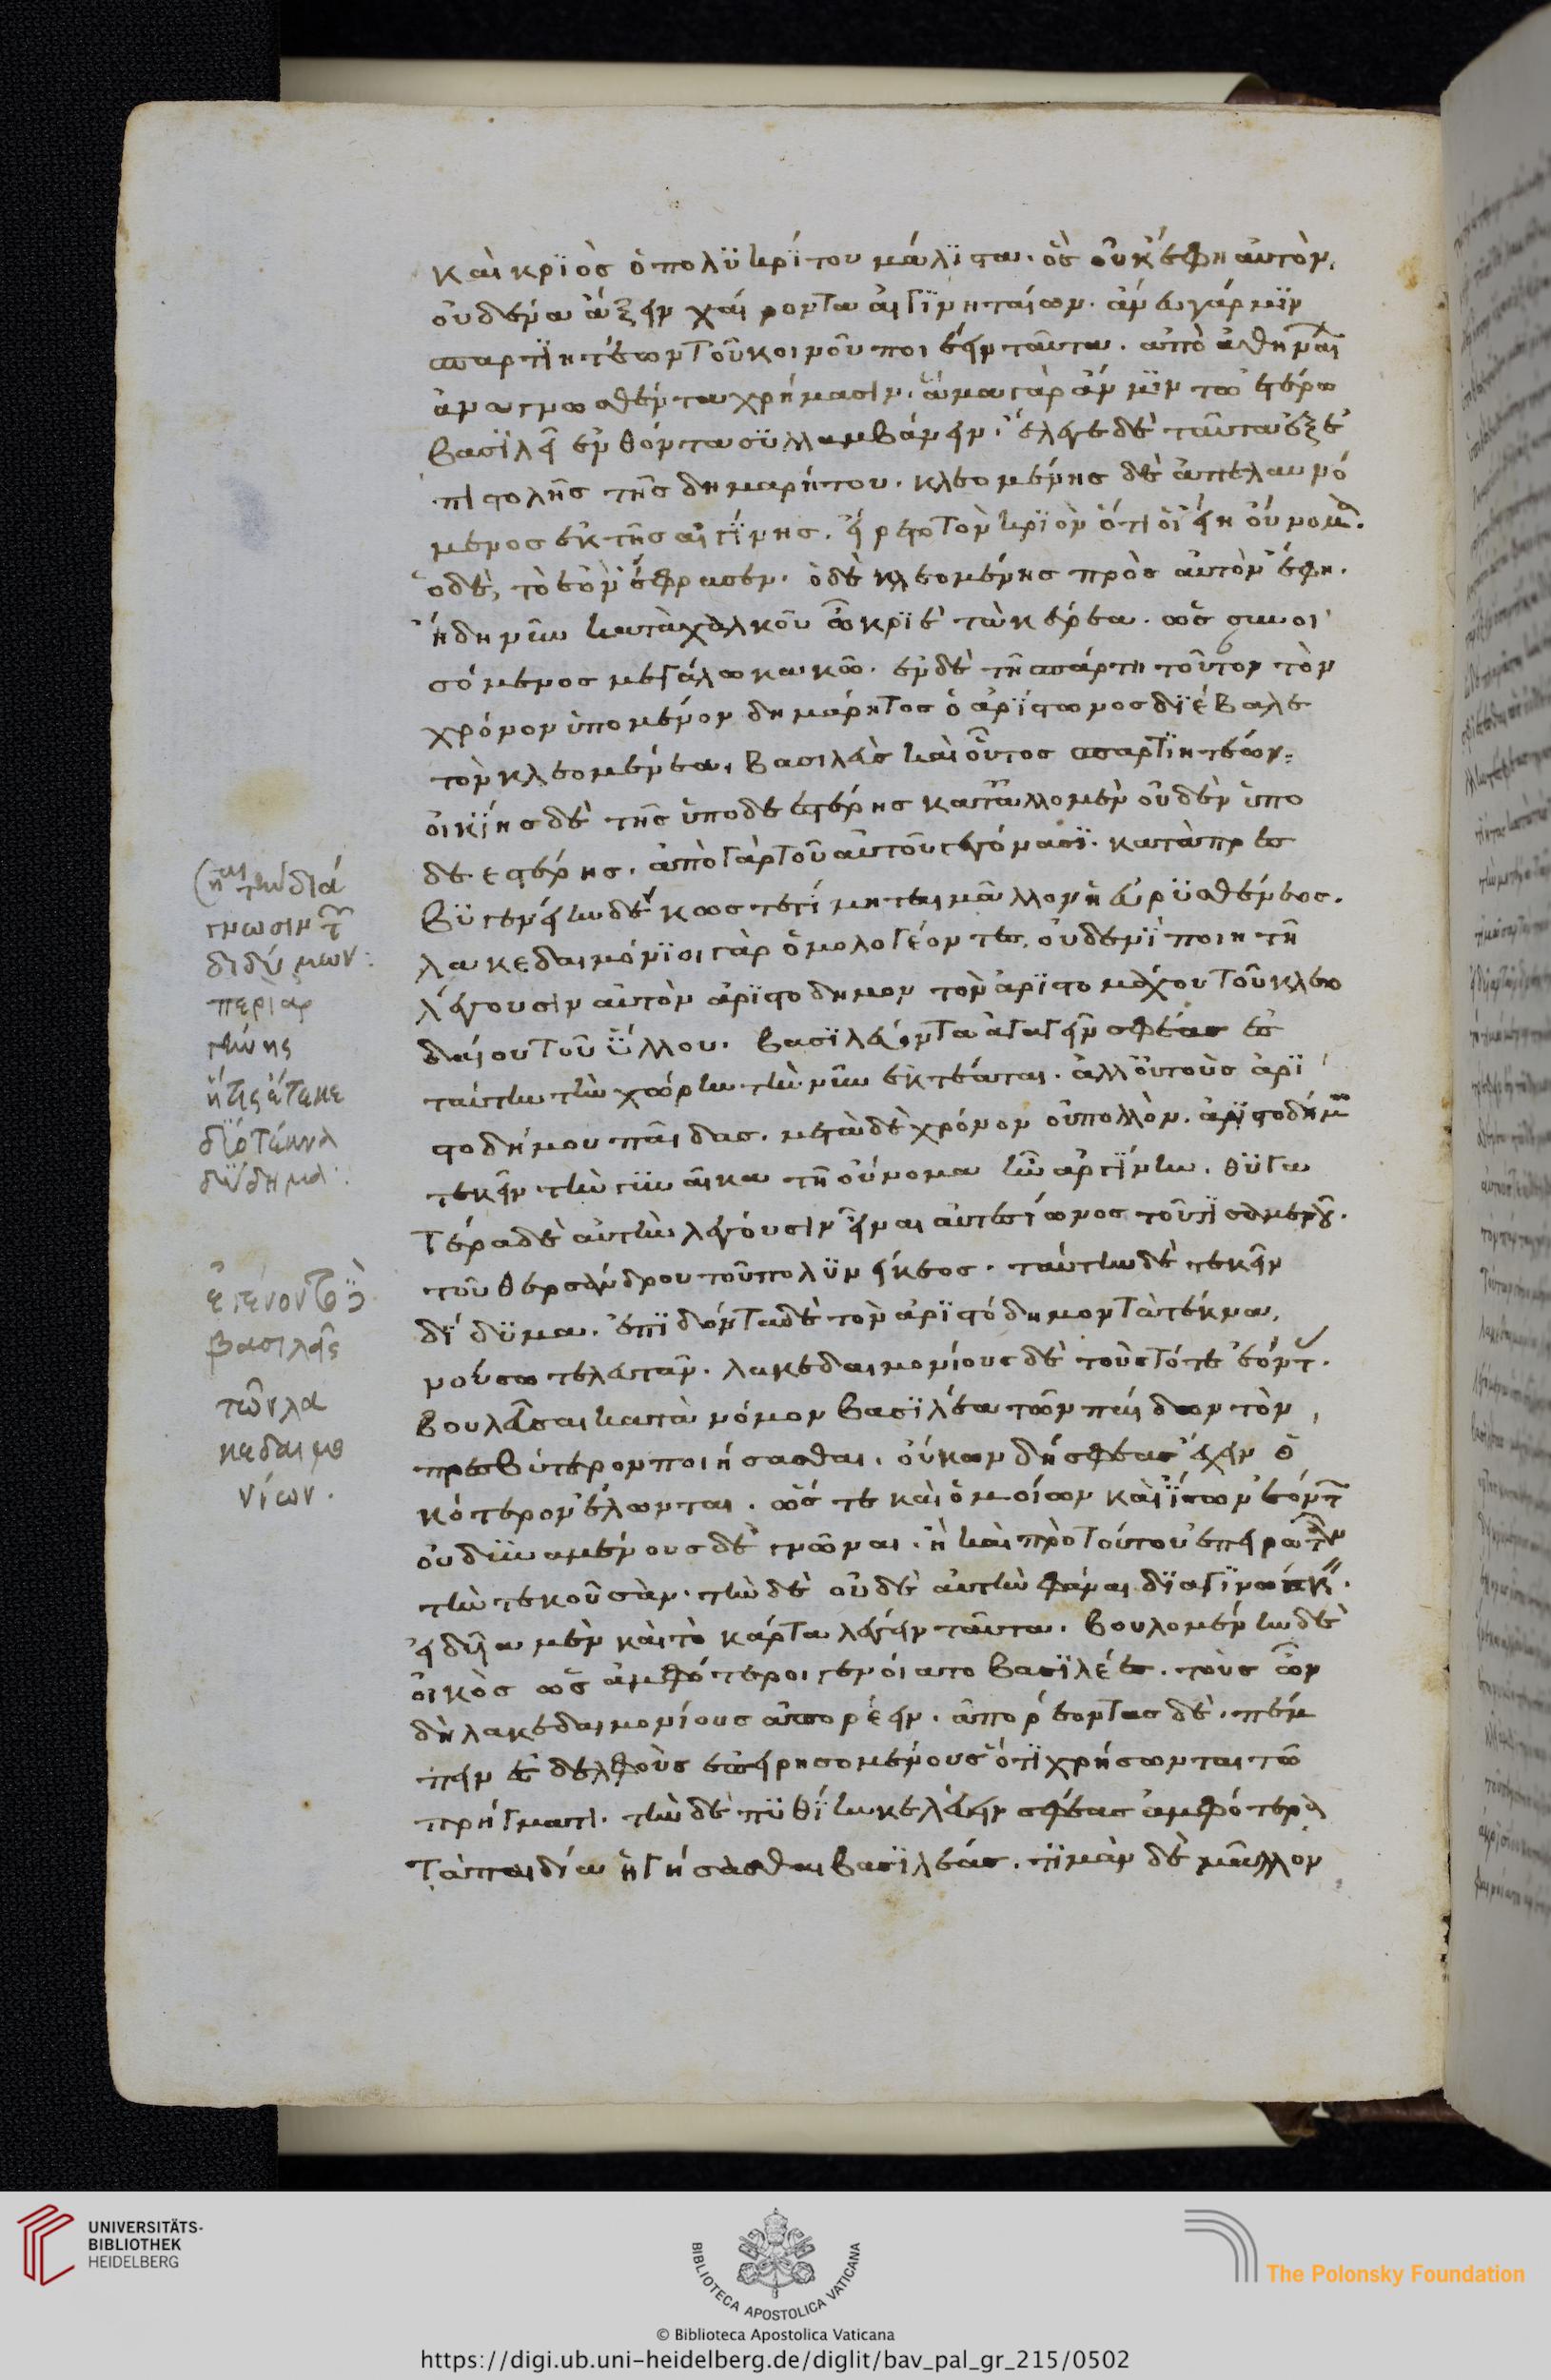 καὶ κρϊὸς ὁ πολϋκρίτου μάλϊστα. ὃς οὐκ ἔφη αὐτὸν,
οὐδένα ἄξειν χαίροντα αἰγϊνητέων. ἄνευ γάρ μϊν
σπαρτϊητέων τοῦ κοινοῦ ποιέειν ταῦτα. ἀπὸ ἀθηναί
ἀναγνωσθέντα χρήμασιν. ἅμα γὰρ ἄν μϊν τῶ ἑτέρω
βασϊλεῖ ἐνθόντα συλλαμβάνειν. ἔλεγε δὲ ταῦτα ἐξ ἐ
πιστολῆς τῆς δημαρήτου. κλεομένης δὲ ἀπελαυνό
μενος ἐκ τῆς αἰγΐνης. εἴρετο τὸν κρϊὸν ὅτι οἱ εἴη οὔνομα.
ὁ δὲ, τὸ ἐὸν ἔφρασεν. ὁ δὲ κλεομένης πρὸς αὐτὸν ἔφη.
ἤδη νῦν καταχαλκοῦ ὦ κρϊὲ τὰ κέρεα. ὡς συνοι
σόμενος μεγάλω κακῶ. ἐν δὲ τῆ σπάρτη τοῦτον τὸν
χρόνον ὑπομένων δημάρητος ὁ ἀρΐστωνος διέβαλε
τὸν κλεομένεα, βασιλεὺς καὶ οὗτος σπαρτϊητέων.
οἰκΐης δὲ τῆς ὑποδεεστέρης κατ' ἄλλο μὲν οὐδὲν ὑπο
δεεστέρης. ἀπὸ γὰρ τοῦ αὐτοῦ γεγόνασϊ. κατὰ πρεσ
βϋγενείην δέ κως τετίμηται μᾶλλον ἡ εὐρϋσθένεος.
λακεδαιμόνϊοι γὰρ ὁμολογέοντες οὐδενὶ ποιητῆ
λέγουσιν αὐτὸν ἀρϊστόδημον τὸν ἀρϊστομάχου τοῦ κλεο
δαίου τοῦ ὕλλου. βασϊλεύοντα ἀγαγεῖν σφέας ἐς
ταύτην τὴν χώρην τὴν νῦν ἐκτέαται. ἀλλ' οὐ τοὺς ἀρϊ
στοδήμου παῖδας. μετὰ δὲ χρόνον οὐ πολλὸν. ἀρϊστοδήμω
τεκεῖν τὴν γυναῖκα τῆ οὔνομα ἦν ἀργΐην. θϋγα
τέρα δὲ αὐτὴν λέγουσιν εἶναι αὐτεσίωνος τοῦ τϊσαμενοῦ.
τοῦ θερσάνδρου τοῦ πολϋνείκεος. ταύτην δὲ τεκεῖν
δΐδϋμα. ἐπιδόντα δὲ τὸν ἀρϊστόδημον τὰ τέκνα,
νούσω τελευτᾶν. λακεδαιμονίους δὲ τοὺς τότε ἐόντας.
βουλεῦσαι κατὰ νόμον βασϊλέα τῶν παίδων τὸν
πρεσβύτερον ποιήσασθαι. οὔκων δή σφεας ἔχειν ὁ
κότερον ἕλωνται. ὥστε καὶ ὁμοίων καὶ ἴσων ἐόντων
οὐ δυναμένους δὲ γνῶναι. ἢ καὶ πρὸ τούτου ἐπειρωτᾶν
τὴν τεκοῦσαν. τὴν δὲ οὐδὲ αὐτὴν φάναι διαγϊνώσκειν.
εἰδυῖα μὲν καὶ τὸ κάρτα λέγειν ταῦτα. βουλομένην δὲ
οἰκὸς ὡς ἀμφότεροι γενοίατο βασϊλέες. τοὺς ὦν
δὴ λακεδαιμονίους ἀπορέειν. ἀπορέοντας δὲ. πέμ
πειν ἐς δελφοὺς ἐπειρησομένους ὅτϊ χρήσωνται τῶ
πρήγματι. τὴν δὲ πϋθΐην κελεύειν σφέας ἀμφότερα
τὰ παιδία ἡγήσασθαι βασϊλέας. τϊμὰν δὲ μᾶλλον
τὴν διά
γνωσιν τῶν
διδύμων:
περὶ ἀρ
γείης
ἥτις ἔτεκε
δΐο τέκνα
δΐδημα:
ἐγένοντο
βασιλεῖς
τῶν λα
κεδαιμο
νίων.
UNIVERSITÄTS-
BIBLIOTHEK
HEIDELBERG
BIBLIOTECA APOSTOLICA VATICANA
The Polonsky Foundation
© Biblioteca Apostolica Vaticana
https://digi.ub.uni-heidelberg.de/diglit/bav_pal_gr_215/0502